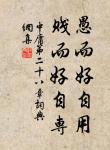 愚而好自用
賤而好自専
中庸第二十八章詞典
網集